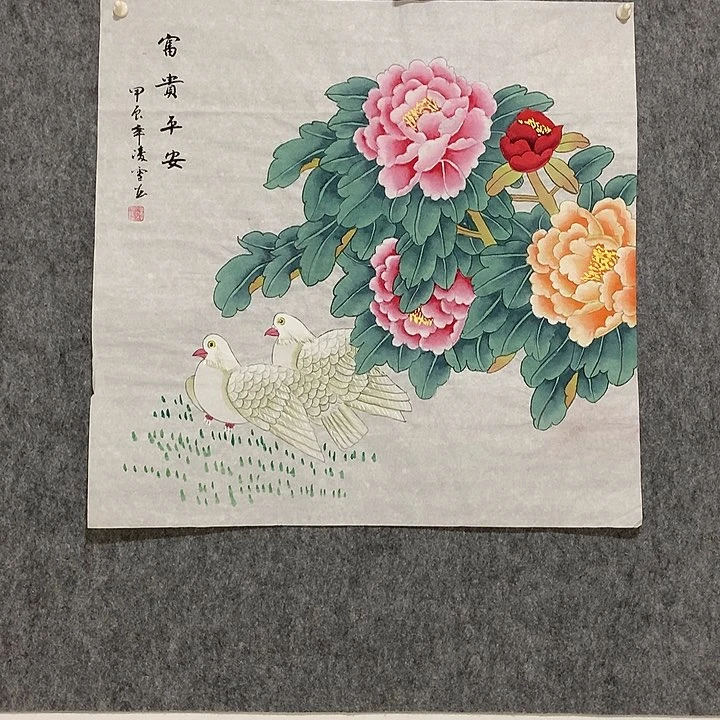 富貴平安
甲辰年凌雪